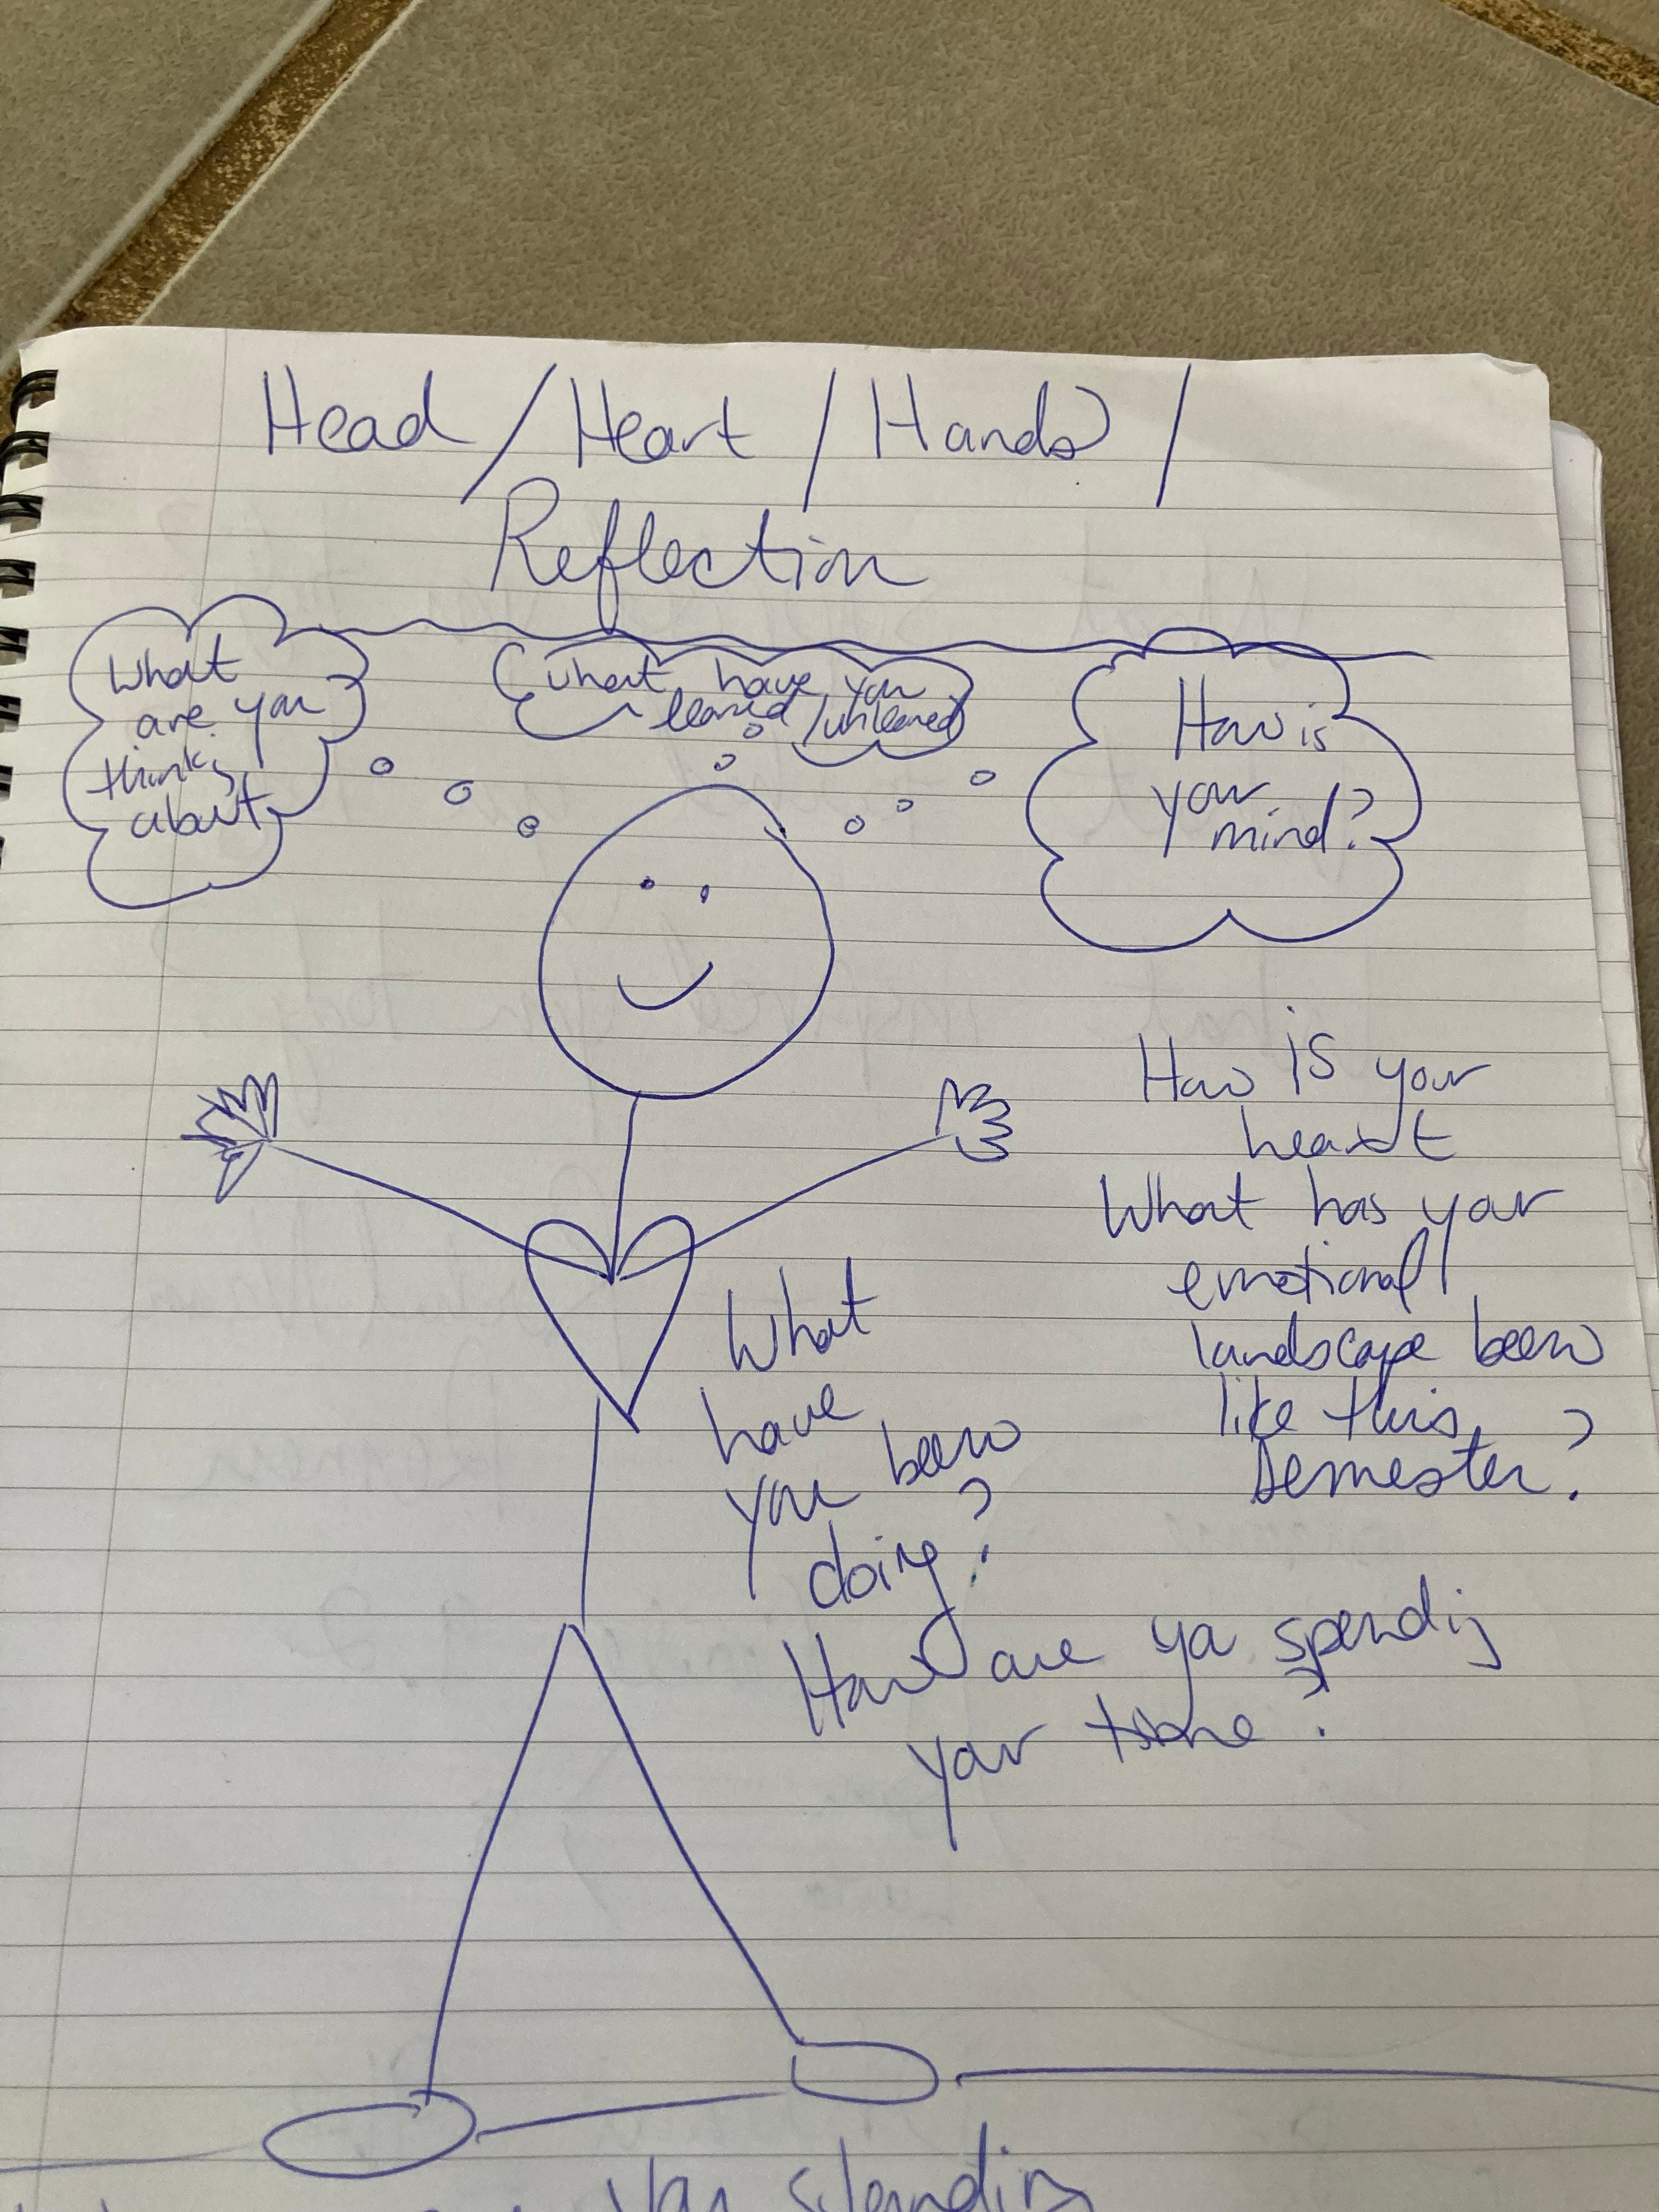 Head / Heart / Hands /
Reflection
What
are you
think
about
what have you
learned / unlearned
How is
your
mind?
How is your
heart
What has your
emotional
landscape been
like this
semester?
What
have
you been
doing?
How are ya spending
your time?
standing